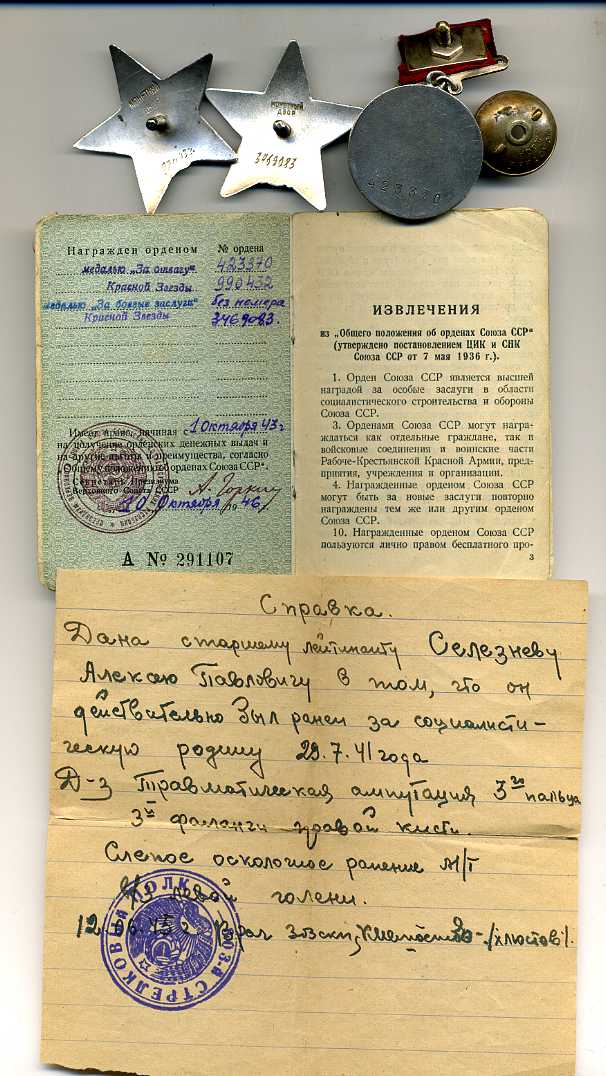 МОНЕТНЫЙ
МОНЕТНЫЙ
ДВОР
3469083
423370
Награжден орденом № ордена
медалью „За отвагу" 423370
Красной Звезды 990432
медалью „За боевые заслуги" без номера
Красной Звезды 3469083.
Имеет право, начиная с 1 октября 43 г
на получение орденских денежных выдач и
на другие льготы и преимущества, согласно
„Общему положению об орденах Союза ССР".
Секретарь Президиума
Верховного Совета СССР А. Горкин
10 октября 1946 г.
А № 291107
ИЗВЛЕЧЕНИЯ
из „Общего положения об орденах Союза ССР"
(утверждено постановлением ЦИК и СНК
Союза ССР от 7 мая 1936 г.).
1. Орден Союза ССР является высшей
наградой за особые заслуги в области
социалистического строительства и обороны
Союза ССР.
3. Орденами Союза ССР могут награ-
ждаться как отдельные граждане, так и
войсковые соединения и воинские части
Рабоче-Крестьянской Красной Армии, пред-
приятия, учреждения и организации.
4. Награжденные орденом Союза ССР
могут быть за новые заслуги повторно
награждены тем же или другим орденом
Союза ССР.
10. Награжденные орденом Союза ССР
пользуются лично правом бесплатного про-
3
Справка.
Дана старшему лейтинанту Селезневу
Алексею Павловичу в том, что он
действительно был ранен за социалисти-
ческую родину 29.7.41 года
Д-з Травматическая ампутация 3го пальца
3й фаланги правой кисти.
Слепое осколочное ранение м/т
левой голени.
Врач /Хлюстов/.
СТРЕЛКОВЫЙ ПОЛК